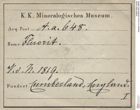 K. K. Mineralogisches Museum.
Acq. Post A.a.648.
Name: Fluorit.
A.d.N. 1819.
Fundort Cumberland, England.